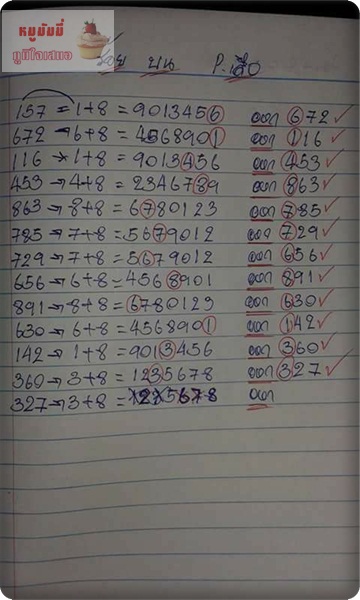 หมูมัมมี่
ภูมิใจเสนอ
บน P.เสือ
157 = 1+8 = 9013456 ออก 672 ✓
672 → 6+8 = 4568901 ออก 116 ✓
116 → 1+8 = 9013456 ออก 453 ✓
453 → 4+8 = 2346789 ออก 863 ✓
863 → 8+8 = 6780123 ออก 785 ✓
785 → 7+8 = 5679012 ออก 729 ✓
729 → 7+8 = 5679012 ออก 656 ✓
656 → 6+8 = 4568901 ออก 891 ✓
891 → 8+8 = 6780123 ออก 630 ✓
630 → 6+8 = 4568901 ออก 142 ✓
142 → 1+8 = 9013456 ออก 360 ✓
360 → 3+8 = 1235678 ออก 327 ✓
327 → 3+8 = 5678 ออก